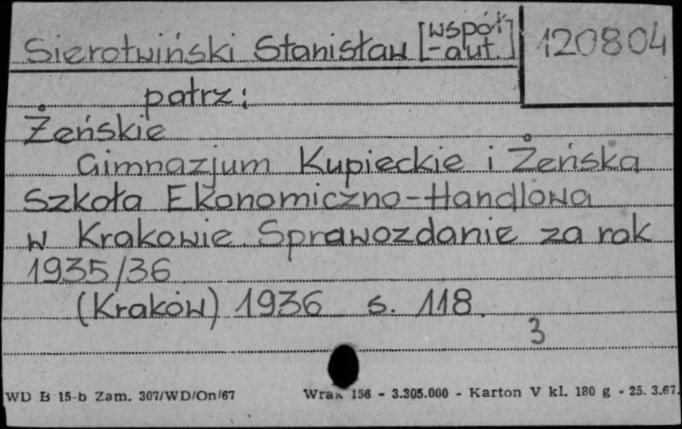 Sierotwiński Stanisław [współ-aut.] 120804
patrz:
Żeńskie
Gimnazjum Kupieckie i Żeńska
Szkoła Ekonomiczno-Handlowa
w Krakowie. Sprawozdanie za rok
1935/36
(Kraków) 1936 s. 118.
3
WD B 15-b Zam. 307/WD/On/67 Wrak 156 - 3.305.000 - Karton V kl. 180 g - 25. 3.67.